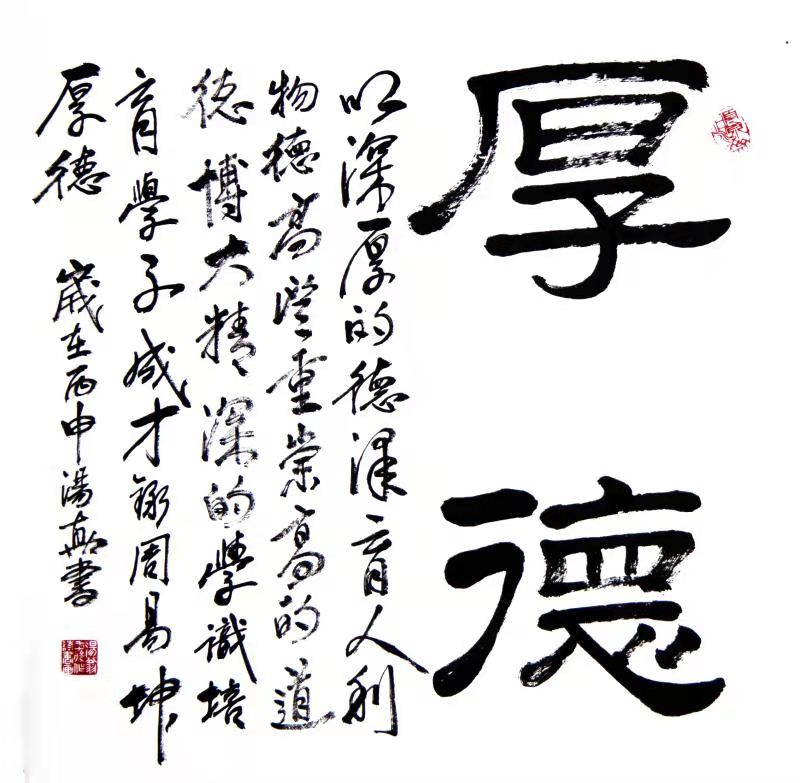 厚德
以深厚的德泽育人利
物德高望重崇高的道
德博大精深的學識培
育學子成才錄周易坤
厚德 歲在丙申湯書